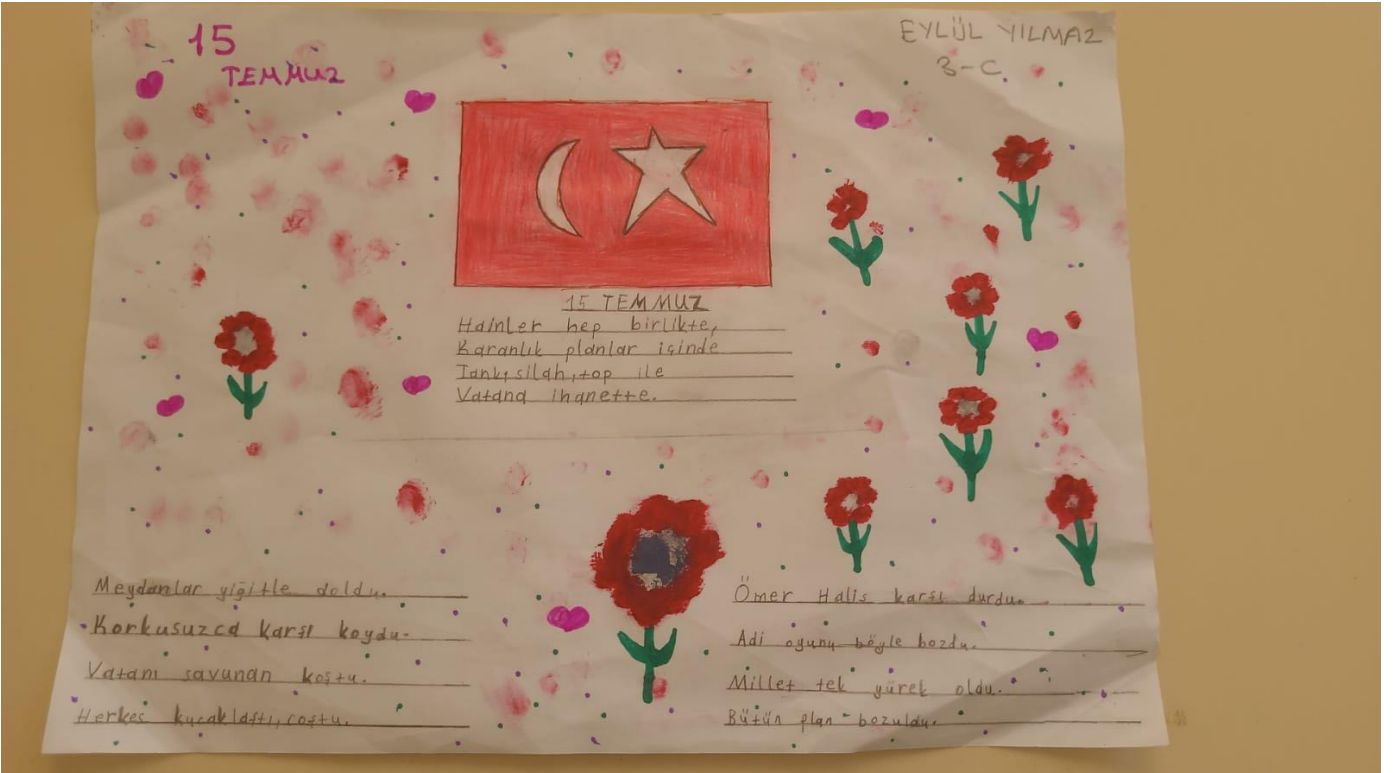 15
TEMMUZ
EYLÜL YILMAZ
3-C
15 TEMMUZ
Hainler hep birlikte,
Karanlık planlar içinde
Tank, silah, top ile
Vatana ihanette.
Meydanlar yiğitle doldu.
Korkusuzca karşı koydu.
Vatanı savunan koştu.
Herkes kucaklaştı, coştu.
Ömer Halis karşı durdu.
Adi oyunu böyle bozdu.
Millet tek yürek oldu.
Bütün plan bozuldu.